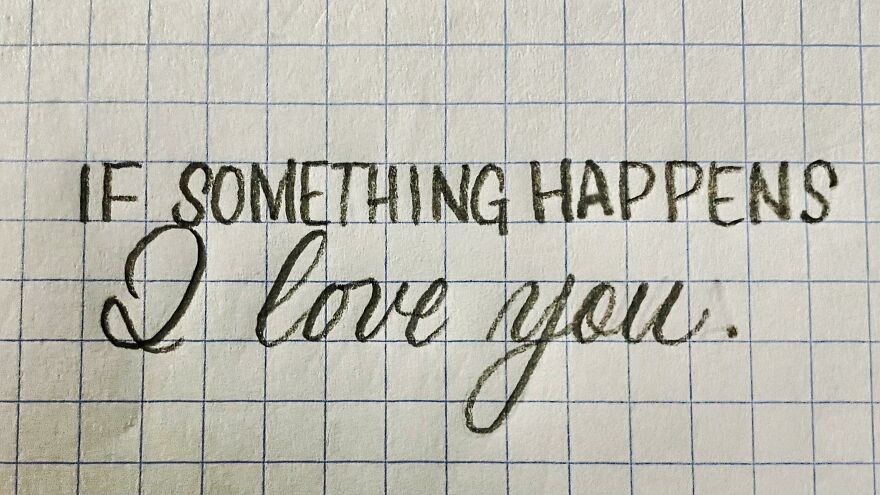 IF SOMETHING HAPPENS
I love you.